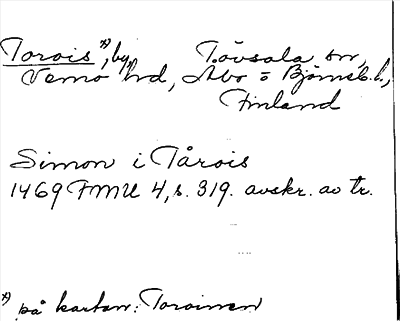 Torois x), by, Tövsala sn,
Vemo hd, Åbo o Björneb. l.,
Finland
Simon i Tårois
1469 FMU 4, s. 319. avskr. av tr.
x) på kartan: Toroinen